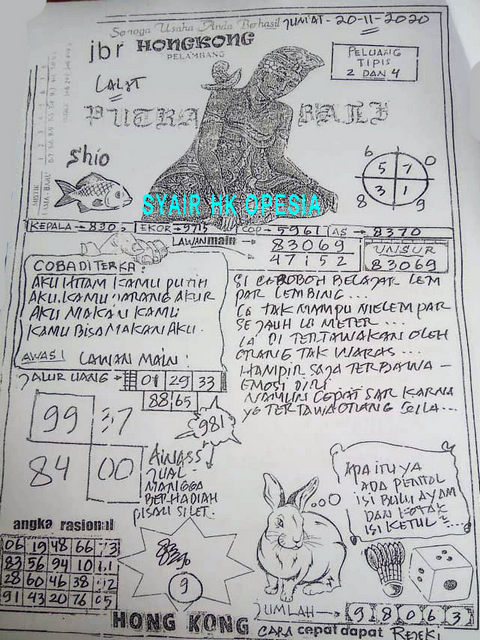 Semoga Usaha Anda Berhasil JUM'AT - 20-11-2020
jbr HONGKONG
PELAMBANG
PELUANG
TIPIS
2 DAN 4
PUTRA BALI
Shio
6 0
5 7
3 1
8 9
SYAIR HK OPESIA
KEPALA → 820, EKOR → 5715 COP → 5961 AS → 8370
LAWAN main → 83069
47152
UNSUR
83069
COBA DITERKA:
AKU HITAM KAMU PUTIH
AKU.KAMU JARANG AKUR
AKU MAKAN KAMU
KAMU BISA MAKAN AKU.
AWAS! LAWAN MAIN:
SI CEROBOH BELAJAR LEM
PAR LEMBING...
IA TAK MAMPU MELEMPAR
SEJAUH 10 METER...
IA DI TERTAWAKAN OLEH
ORANG TAK WARAS...
HAMPIR SAJA TERBAWA -
EMOSI DIRI
NAMUN CEPAT SAR KARNA
YG TERTAWA ORANG GILA...
JALUR UANG → 01 29 33
88 65
981
99 37
84 00
AWASS
JUAL
MANGGA
BERHADIAH
PISAU SILET.
APA ITU YA
ADA PENTOL
ISI BULU AYAM
DAN KOTAK
ISI KETUL²...
angka rasional
06 19 48 66 73
83 56 94 10
28 60 46 38
91 43 20 76 05
9
JUMLAH → 9 8 0 6 3
HONG KONG CARA cepat dapat